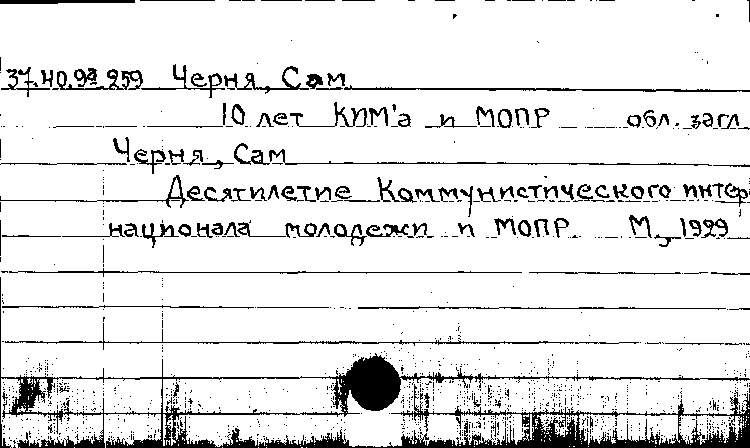 37.40.9а 259 Черня, Сам
10 лет КИМ'а и МОПР обл. загл
Черня, Сам
Десятилетие Коммунистического интер
национала молодежи и МОПР. М., 1929